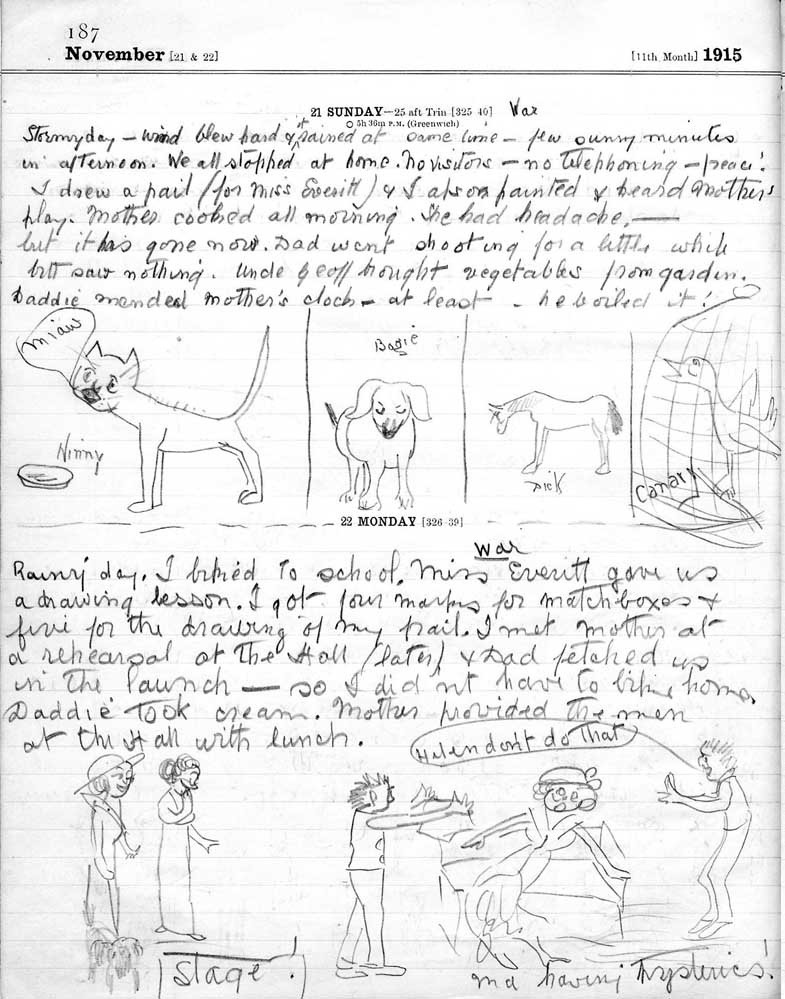 187
November [21 & 22] [11th Month] 1915
21 SUNDAY—25 aft Trin [325-40] War
○ 5h 36m P.M. (Greenwich)
Stormy day – wind blew hard & it rained at same time – few sunny minutes
in afternoon. We all stopped at home. No visitors – no telephoning – peace!
I drew a pail (for Miss Everitt) & I also painted & heard Mother's
play. Mother cooked all morning. She had headache, —
but it has gone now. Dad went shooting for a little while
but saw nothing. Uncle Geoff bought vegetables from garden.
Daddie mended Mother's clock – at least – he boiled it!
Miaw
Ninny
Dick
Canary
22 MONDAY [326-39]
War
Rainy day. I biked to school. Miss Everitt gave us
a drawing lesson. I got four marks for matchboxes &
five for the drawing of my pail. I met Mother at
a rehearsal at the Hall (later) & Dad fetched us
in the launch — so I did nt have to bike home.
Daddie took cream. Mother provided the men
at the Hall with lunch.
Helen don't do that
Stage!
Ma having hysterics!